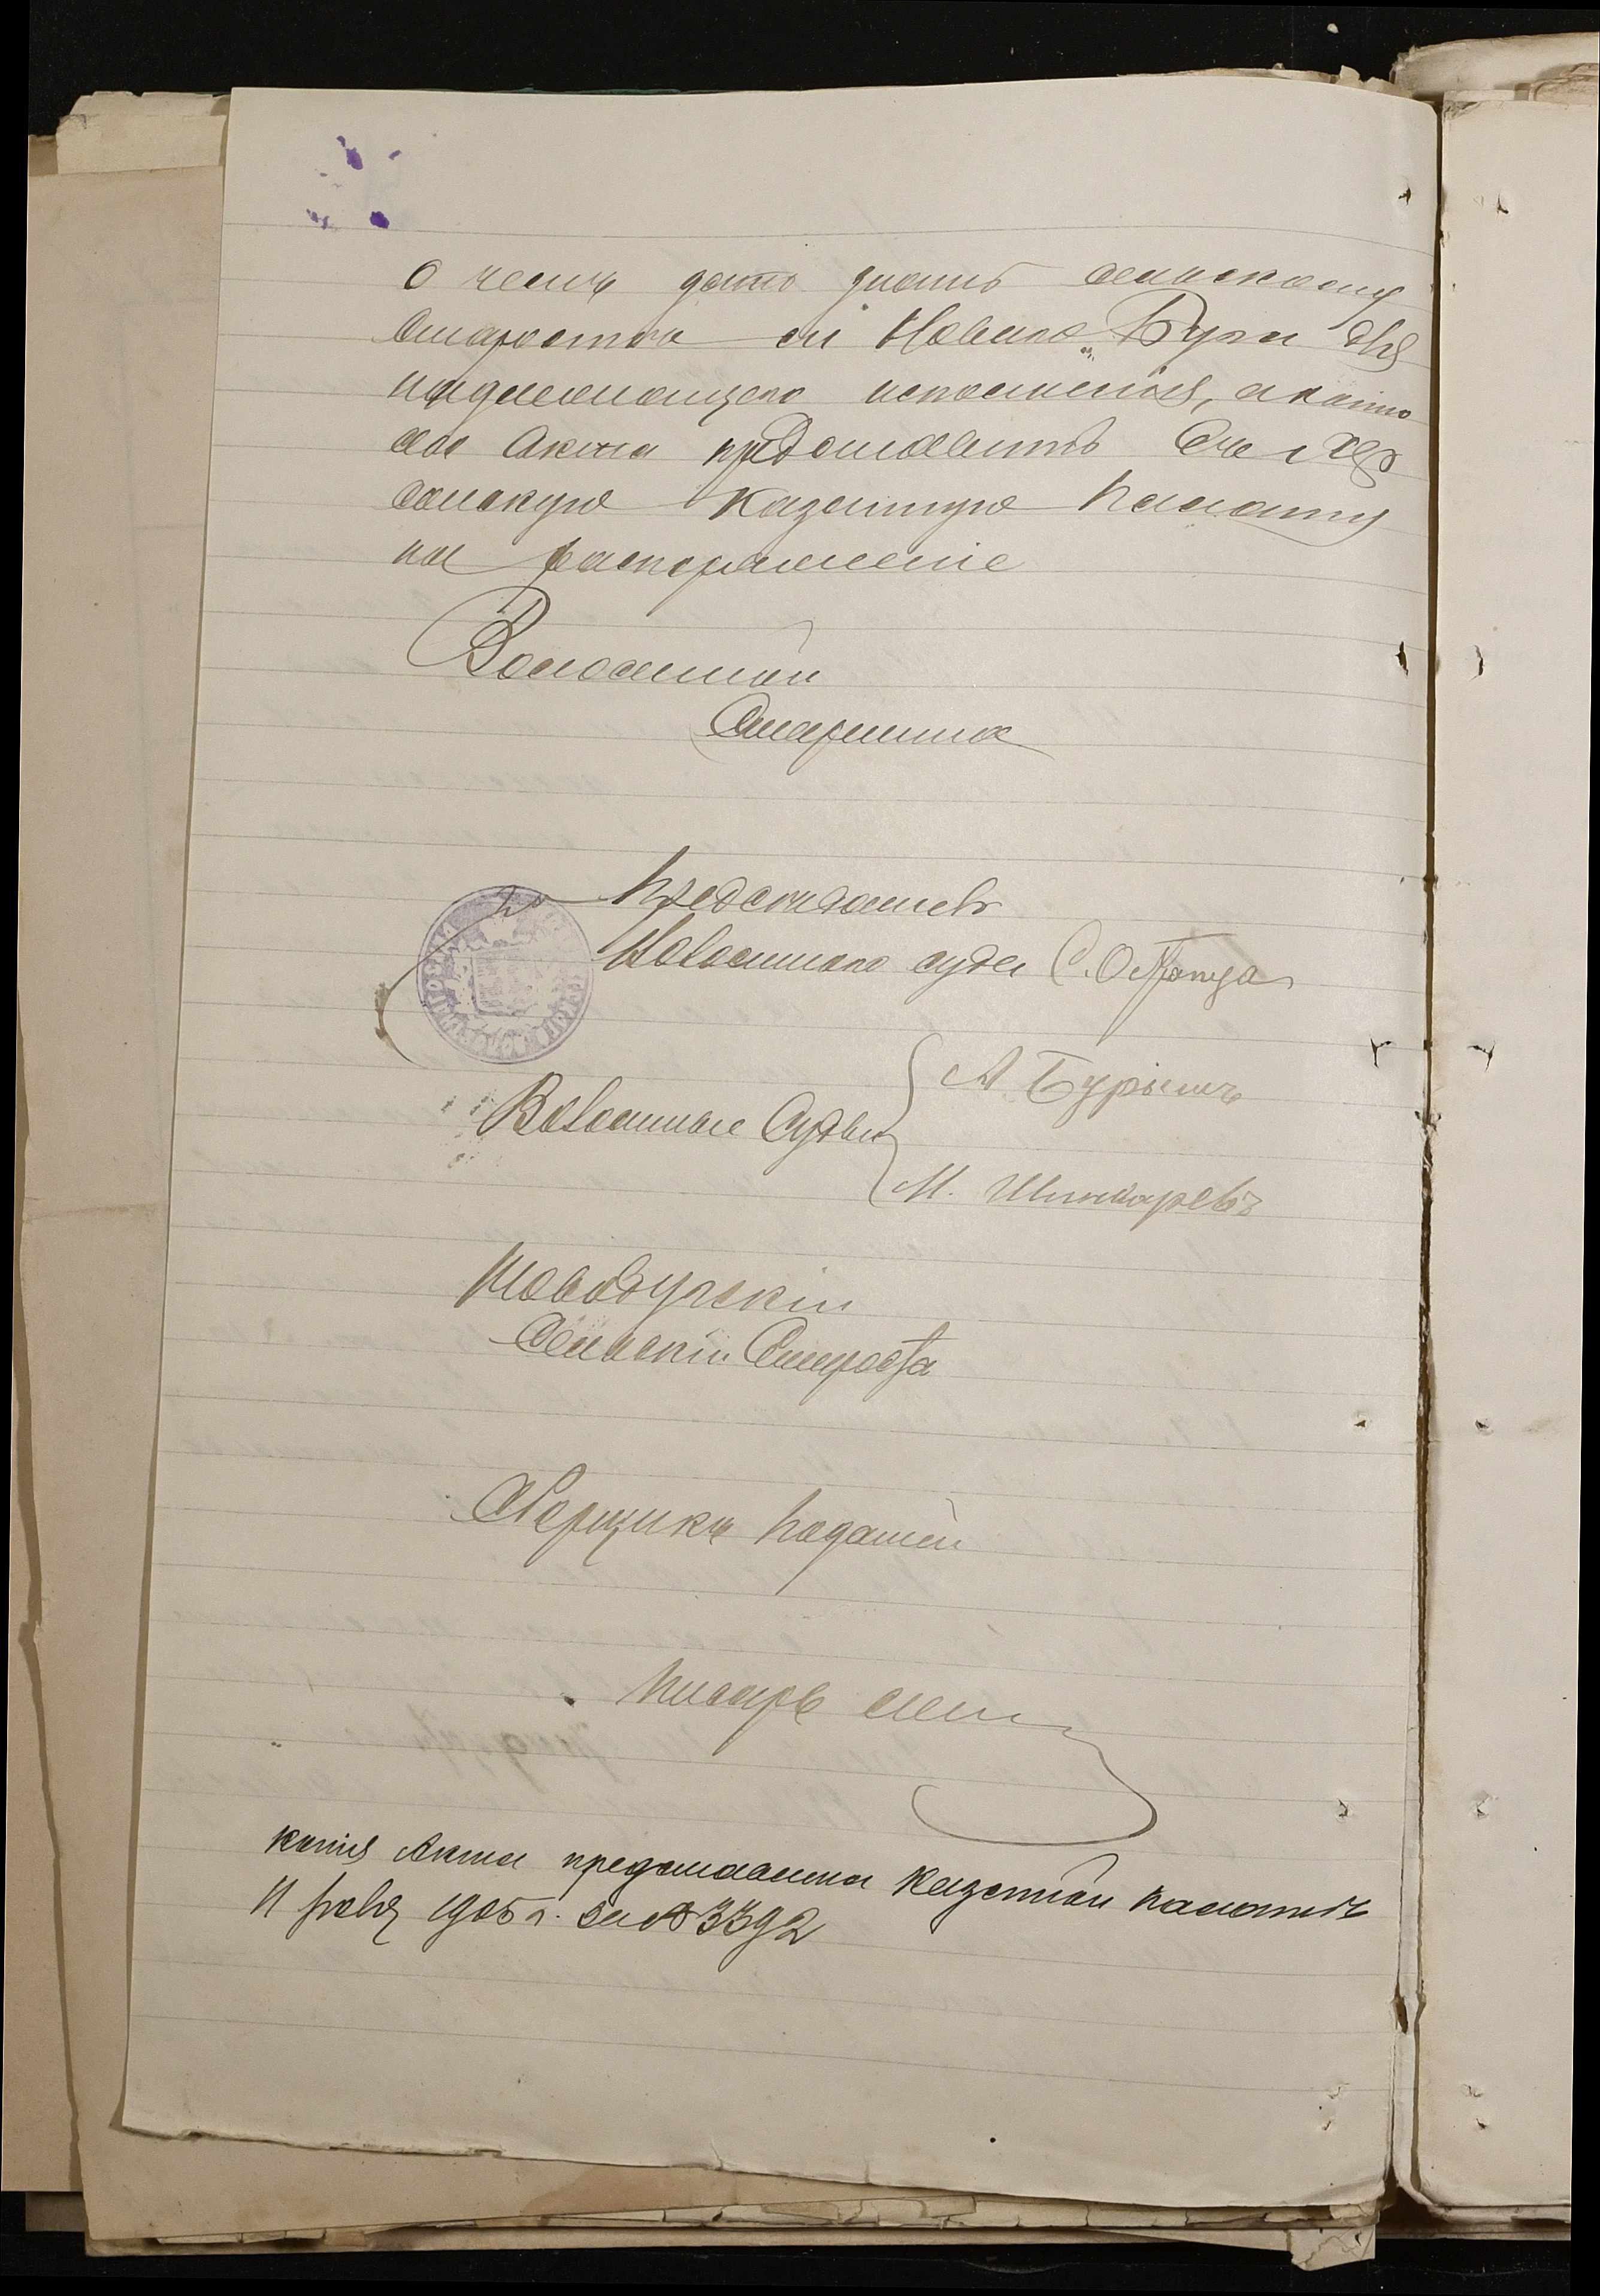 О чемъ дать знать сельскому
Старостѣ с. Новаго Буга для
надлежащаго исполненія, а копію
сего Акта представить въ Хер
сонскую Казенную Палату
на распоряженіе
Волостной
Старшина
Председатель
Волостного суда С. Остапца
Волостные Судьи
А Бурымъ
М. Шинкаревъ
Новобугскій
Сельскій Староста
Сборщикъ Податей
Писарь
копія Акта представлена Казенной палатѣ
11 1905 г. за № 3392